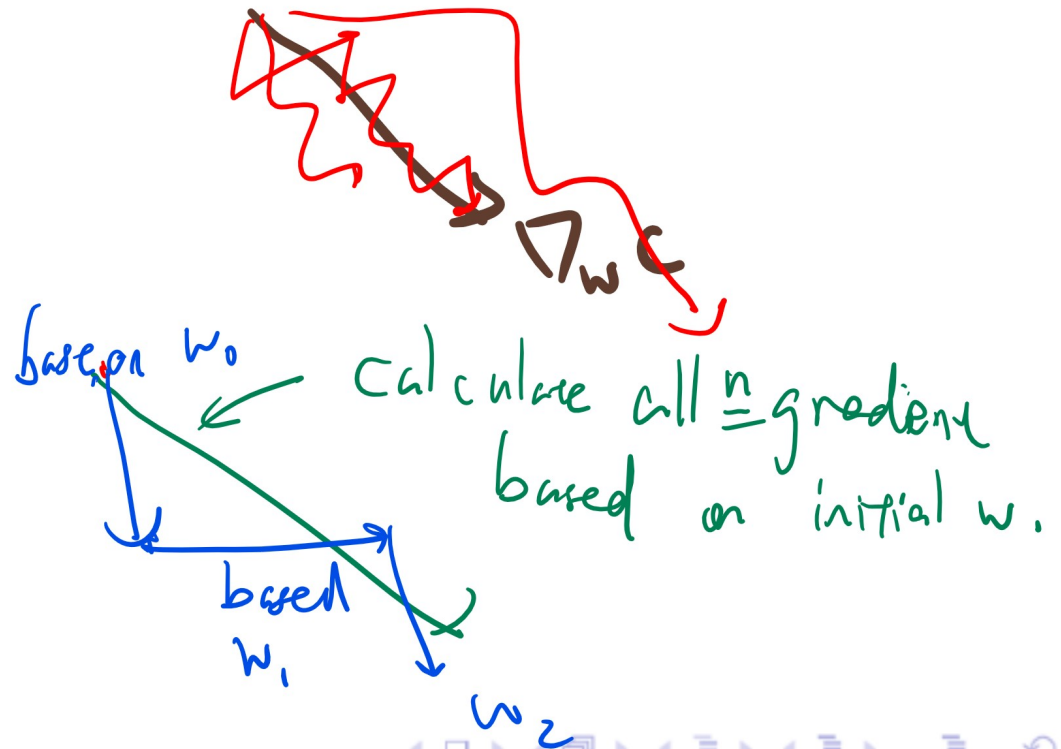 ∇w C
base on w₀
Calculate all n gradient
based on initial w.
based
w₁
w₂